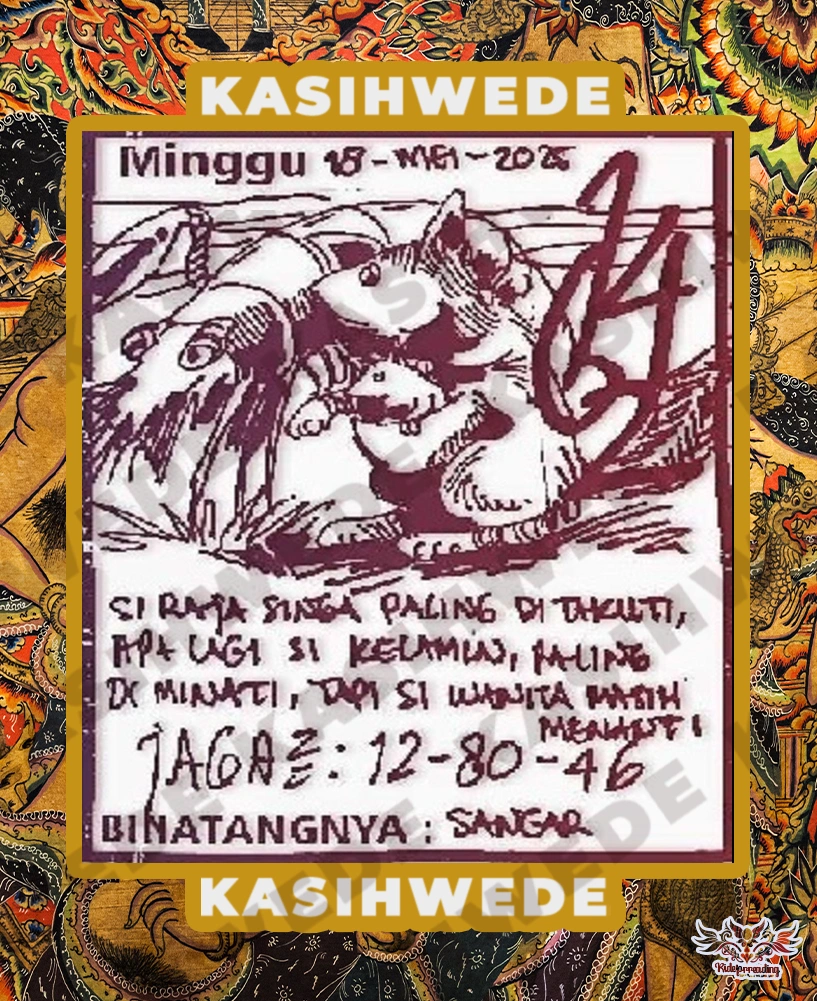 KASIHWEDE
Minggu 18-MEI-2025
SI RAJA SINGA PALING DI TAKUTI,
APA LAGI SI KELAMIN, PALING
DI MINATI, TAPI SI WANITA MASIH
MENANTI
JAGA2 : 12-80-46
BINATANGNYA : SANGAR
KASIHWEDE